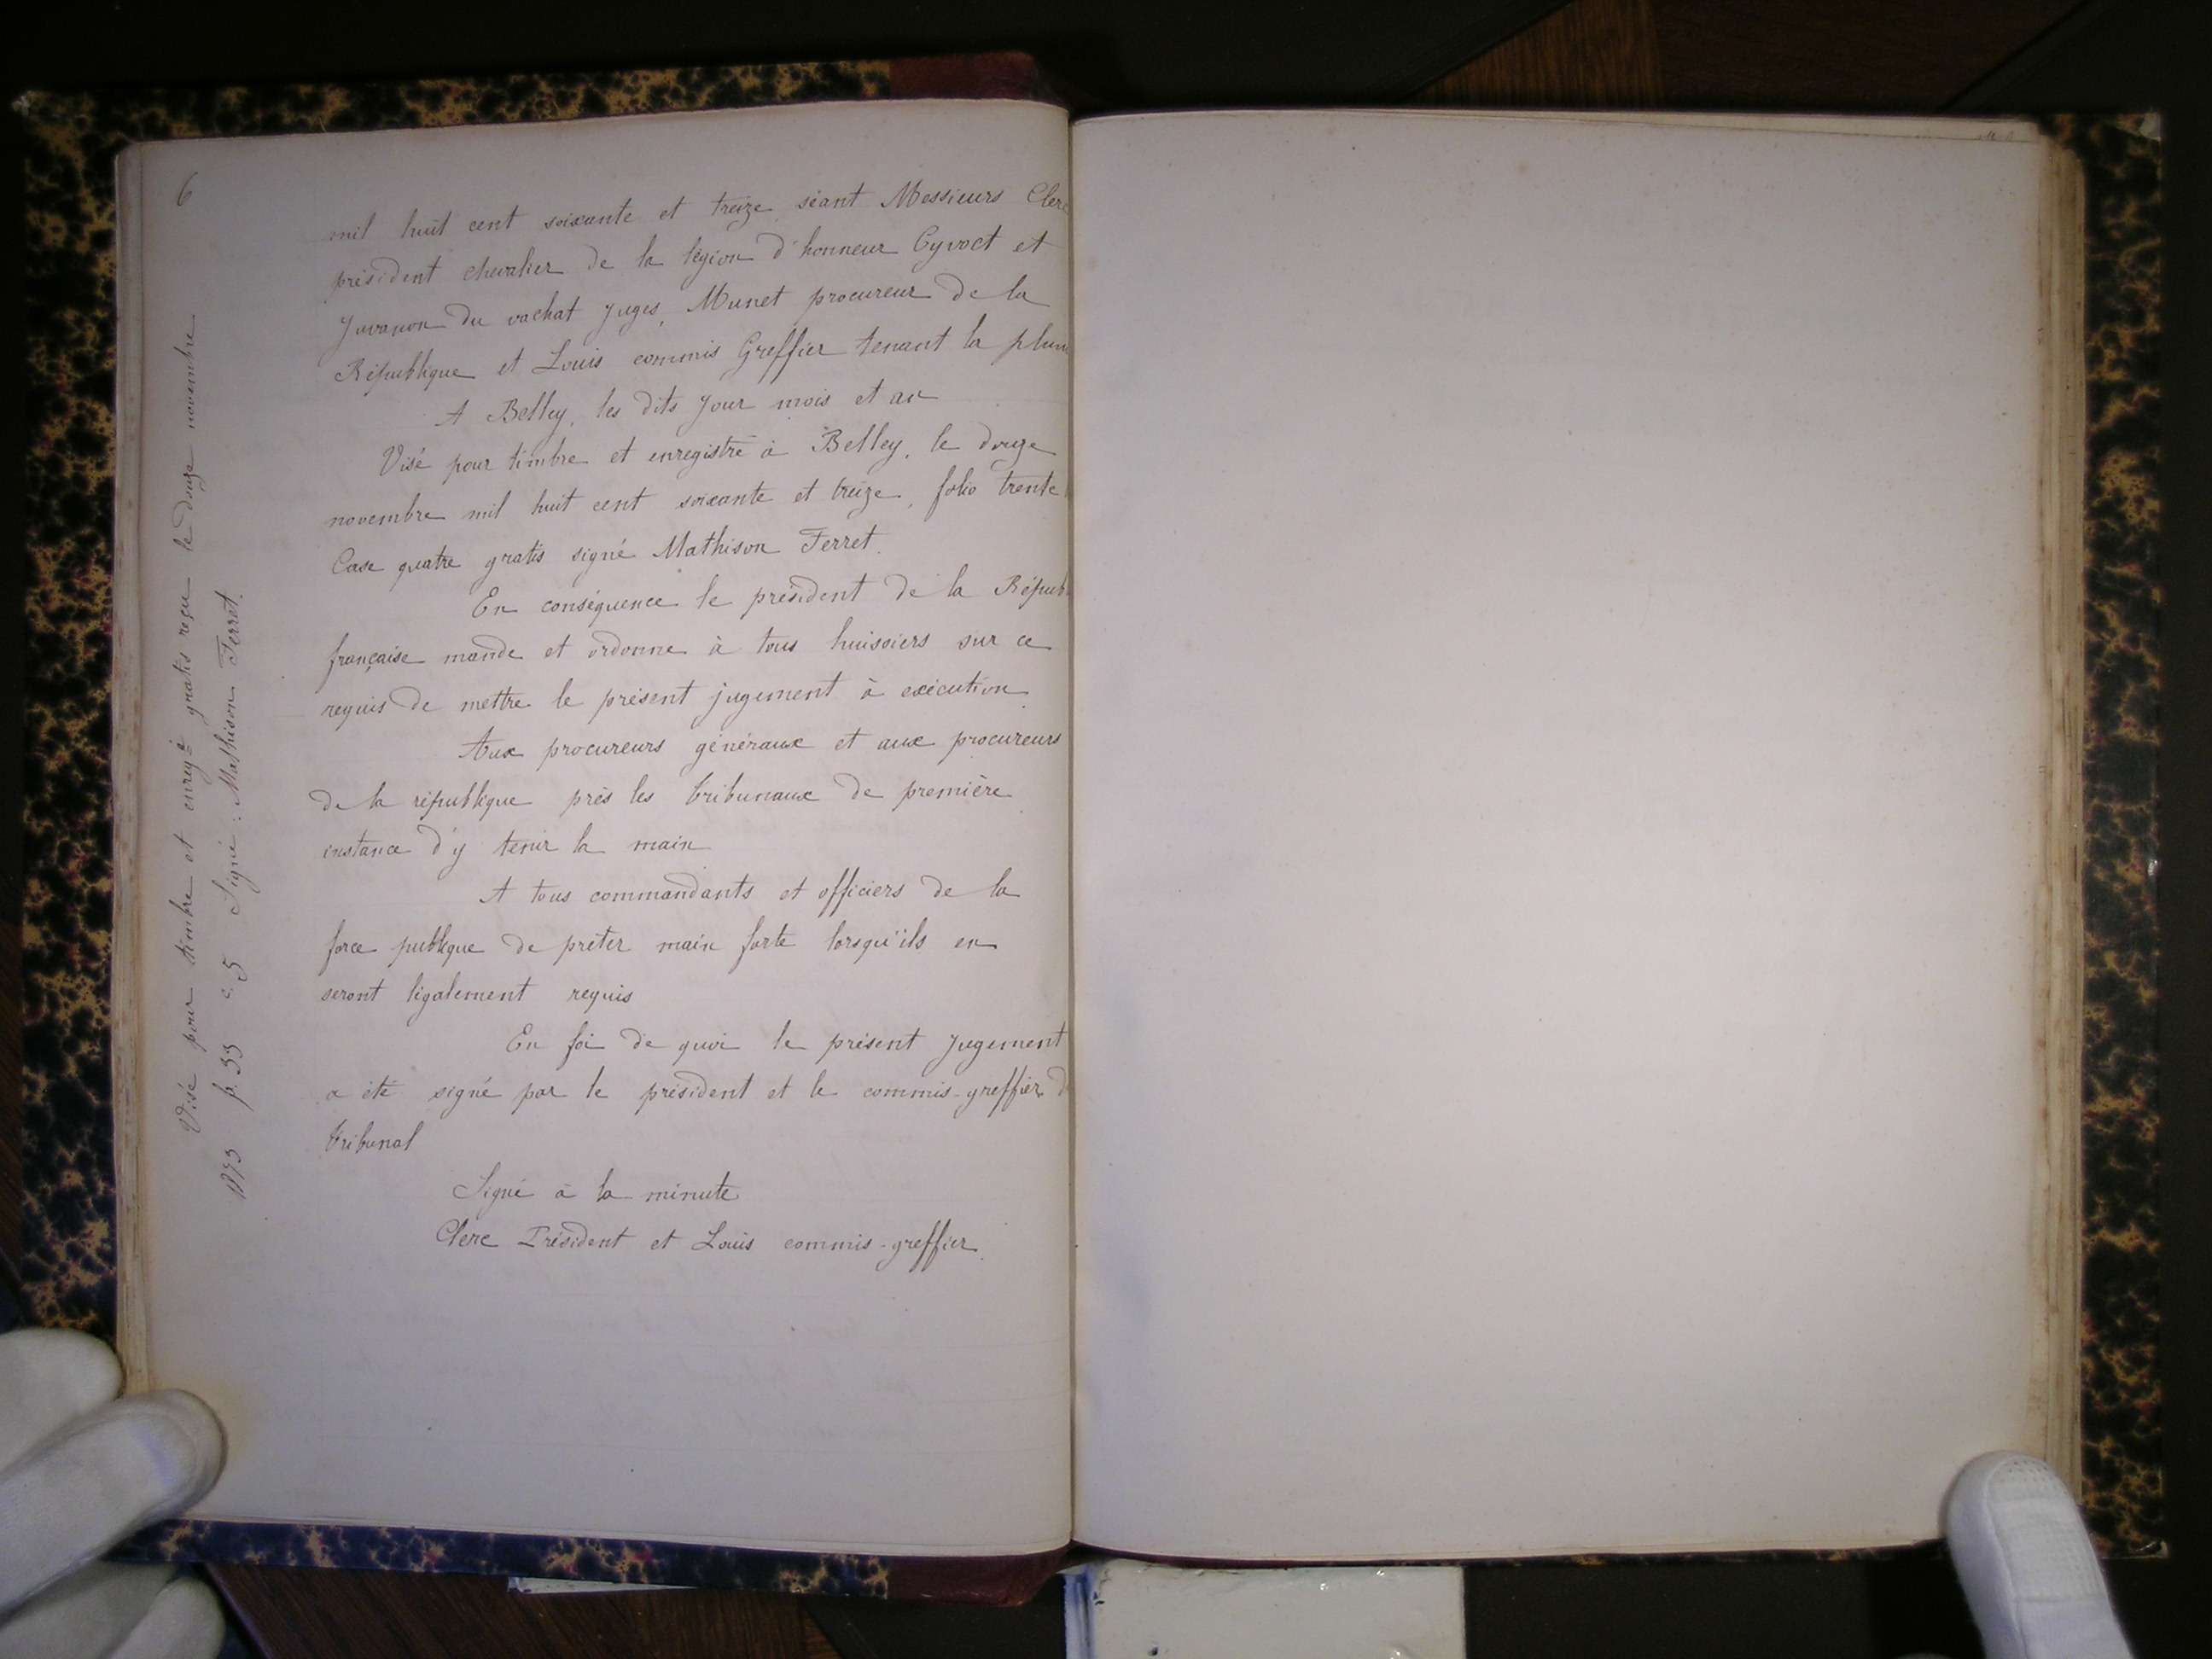 6
mil huit cent soixante et treize séant Messieurs Clerc
président chevalier de la légion d'honneur Cyvoct et
Juvanon du vachat Juges, Munet procureur de la
République et Louis commis Greffier tenant la plum
A Belley, les dits Jour mois et an
Visé pour timbre et enregistré à Belley, le douze
novembre mil huit cent soixante et treize, folio trente
Case quatre gratis signé Mathison Ferret.
En conséquence le président de la Répub
française mande et ordonne à tous huissiers sur ce
requis de mettre le présent jugement à exécution.
Aux procureurs généraux et aux procureurs
de la république près les tribunaux de première
instance d'y tenir la main
A tous commandants et officiers de la
force publique de prêter main forte lorsqu'ils en
seront légalement requis
En foi de quoi le présent Jugement
a été signé par le président et le commis-greffier d
tribunal
Signé à la minute
Clerc Président et Louis commis-greffier.
Visé pour timbre et enregé gratis reçu le douze novembre
1873 f. 33 c. 5 Signé : Mathison Ferret.